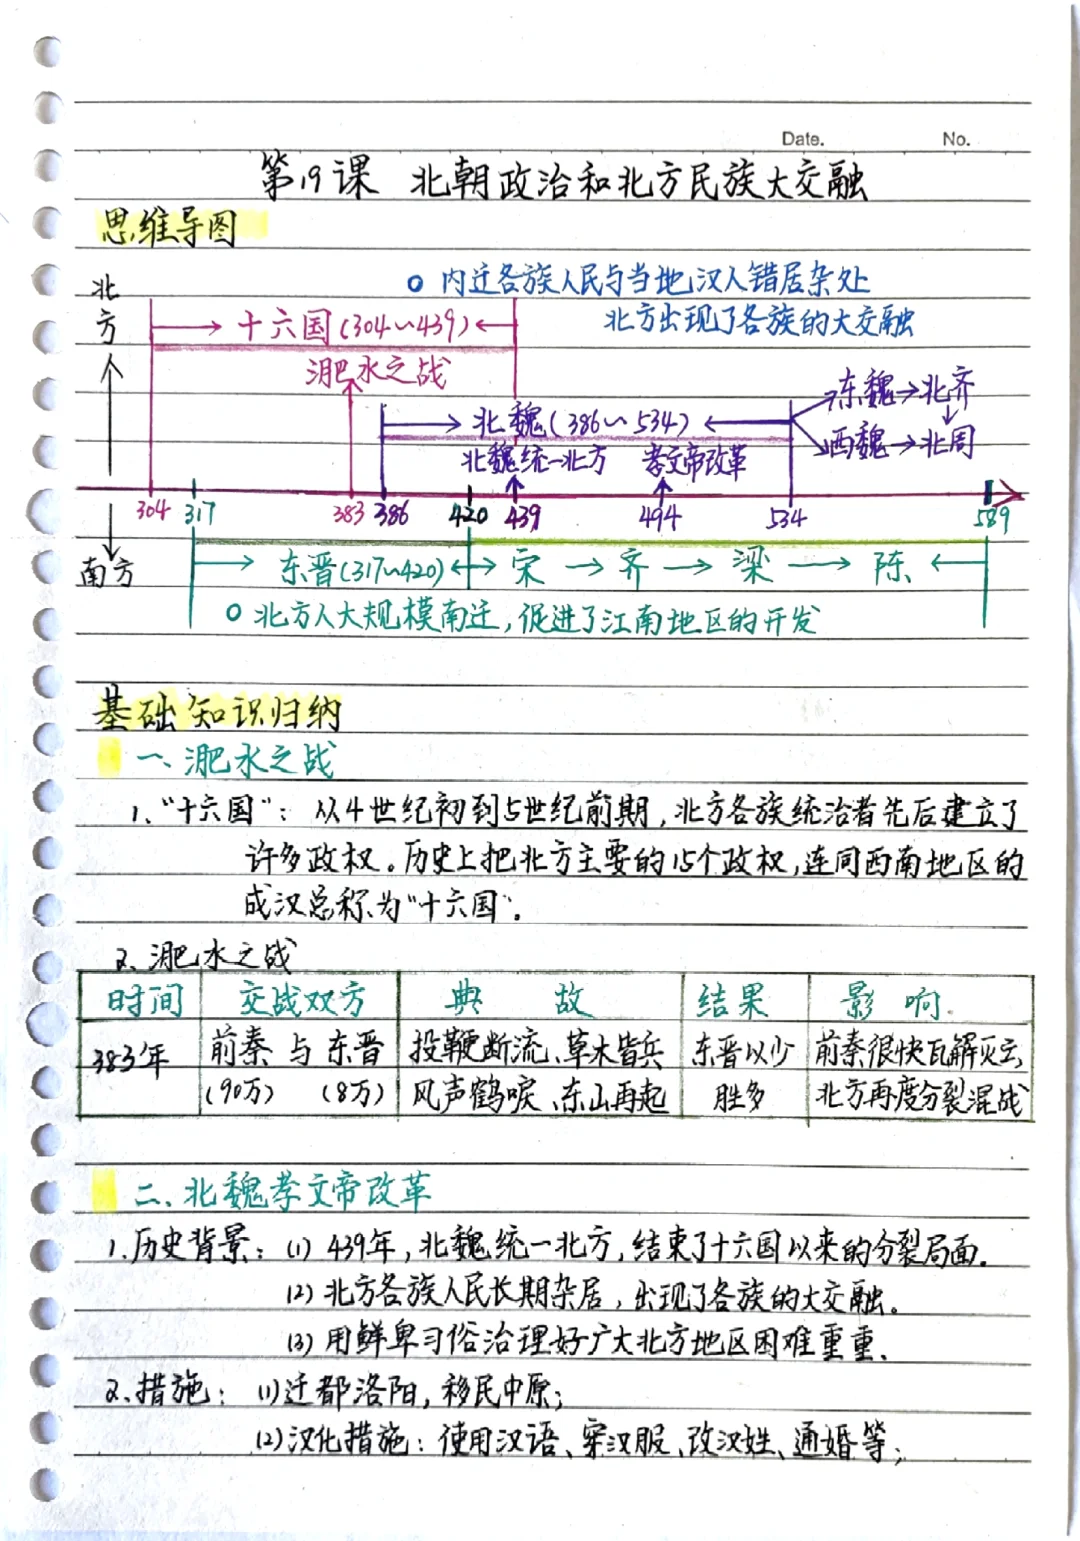 Date. No.
第19课 北朝政治和北方民族大交融
思维导图
北方
○ 内迁各族人民与当地汉人错居杂处
北方出现了各族的大交融
十六国(304~439)
淝水之战
东魏→北齐
北魏(386~534)
西魏→北周
北魏统一北方 孝文帝改革
304 317 383 386 420 439 494 534 589
南方
东晋(317~420) 宋→齐→梁→陈
○ 北方人大规模南迁,促进了江南地区的开发
基础知识归纳
一、淝水之战
1、“十六国”: 从4世纪初到5世纪前期,北方各族统治者先后建立了
许多政权。历史上把北方主要的15个政权,连同西南地区的
成汉总称为“十六国”。
2、淝水之战
时间 交战双方 典故 结果 影响
383年 前秦 与 东晋 投鞭断流、草木皆兵 东晋以少 前秦很快瓦解灭亡,
(90万) (8万) 风声鹤唳、东山再起 胜多 北方再度分裂混战
二、北魏孝文帝改革
1.历史背景: (1) 439年,北魏统一北方,结束了十六国以来的分裂局面。
(2) 北方各族人民长期杂居,出现了各族的大交融。
(3) 用鲜卑习俗治理好广大北方地区困难重重、
2、措施: (1)迁都洛阳,移民中原;
(2)汉化措施: 使用汉语、穿汉服、改汉姓、通婚等;